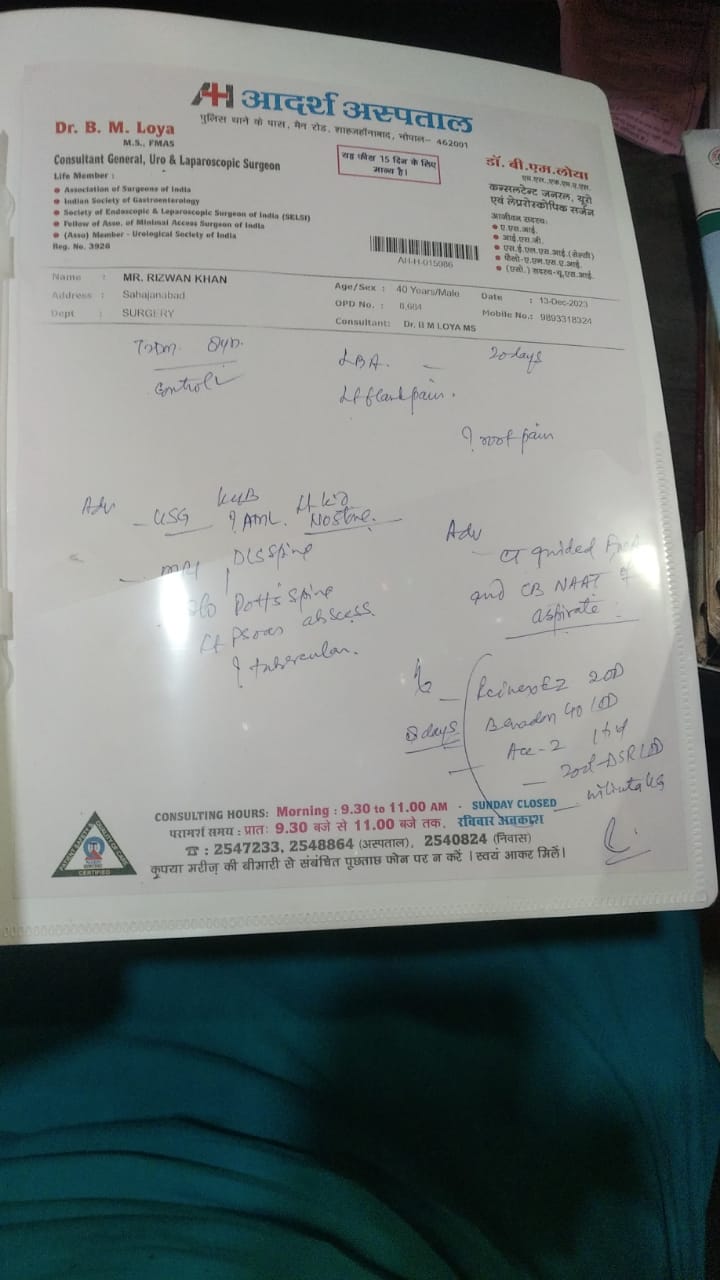 AH आदर्श अस्पताल
पुलिस थाने के पास, मैन रोड, शाहजहाँनाबाद, भोपाल- 462001
Dr. B. M. Loya
M.S., FMAS
Consultant General, Uro & Laparoscopic Surgeon
Life Member :
• Association of Surgeons of India
• Indian Society of Gastroenterology
• Society of Endoscopic & Laparoscopic Surgeon of India (SELSI)
• Fellow of Asso. of Minimal Access Surgeon of India
• (Asso) Member - Urological Society of India
Reg. No. 3926
यह फीस 15 दिन के लिए
मान्य है।
डॉ. बी.एम.लोया
एम.एस., एफ.एम.ए.एस.
कन्सलटेन्ट जनरल, यूरो
एवं लेप्रोस्कोपिक सर्जन
आजीवन सदस्य:
• ए.एस.आई.
• आई.एस.जी.
• एस.ई.एल.एस.आई.(सेल्सी)
• फैलो-ए.एम.एस.ए.आई.
• (एसो.) सदस्य-यू.एस.आई.
AH-H-015086
Name : MR. RIZWAN KHAN
Age/Sex : 40 Years/Male
Date : 13-Dec-2023
Address : Sahajanabad
OPD No. : 8,664
Mobile No.: 9893318324
Dept : SURGERY
Consultant: Dr. B M LOYA MS
Control
LBA. - 20 days
Lt flank pain.
? root pain
Adv - USG KUB
? AML. Lt kid
No stone.
- MRI DLS spine
Pott's spine
Lt Psoas abscess
? tubercular.
Adv
- CT guided
and CB NAAT of
aspirate
8 days
Benadon 40 1OD
DSR 1OD
CONSULTING HOURS: Morning : 9.30 to 11.00 AM - SUNDAY CLOSED
परामर्श समय : प्रातः 9.30 बजे से 11.00 बजे तक, रविवार अवकाश
☎ : 2547233, 2548864 (अस्पताल), 2540824 (निवास)
कृपया मरीज़ की बीमारी से संबंधित पूछताछ फोन पर न करें । स्वयं आकर मिलें।
CERTIFIED